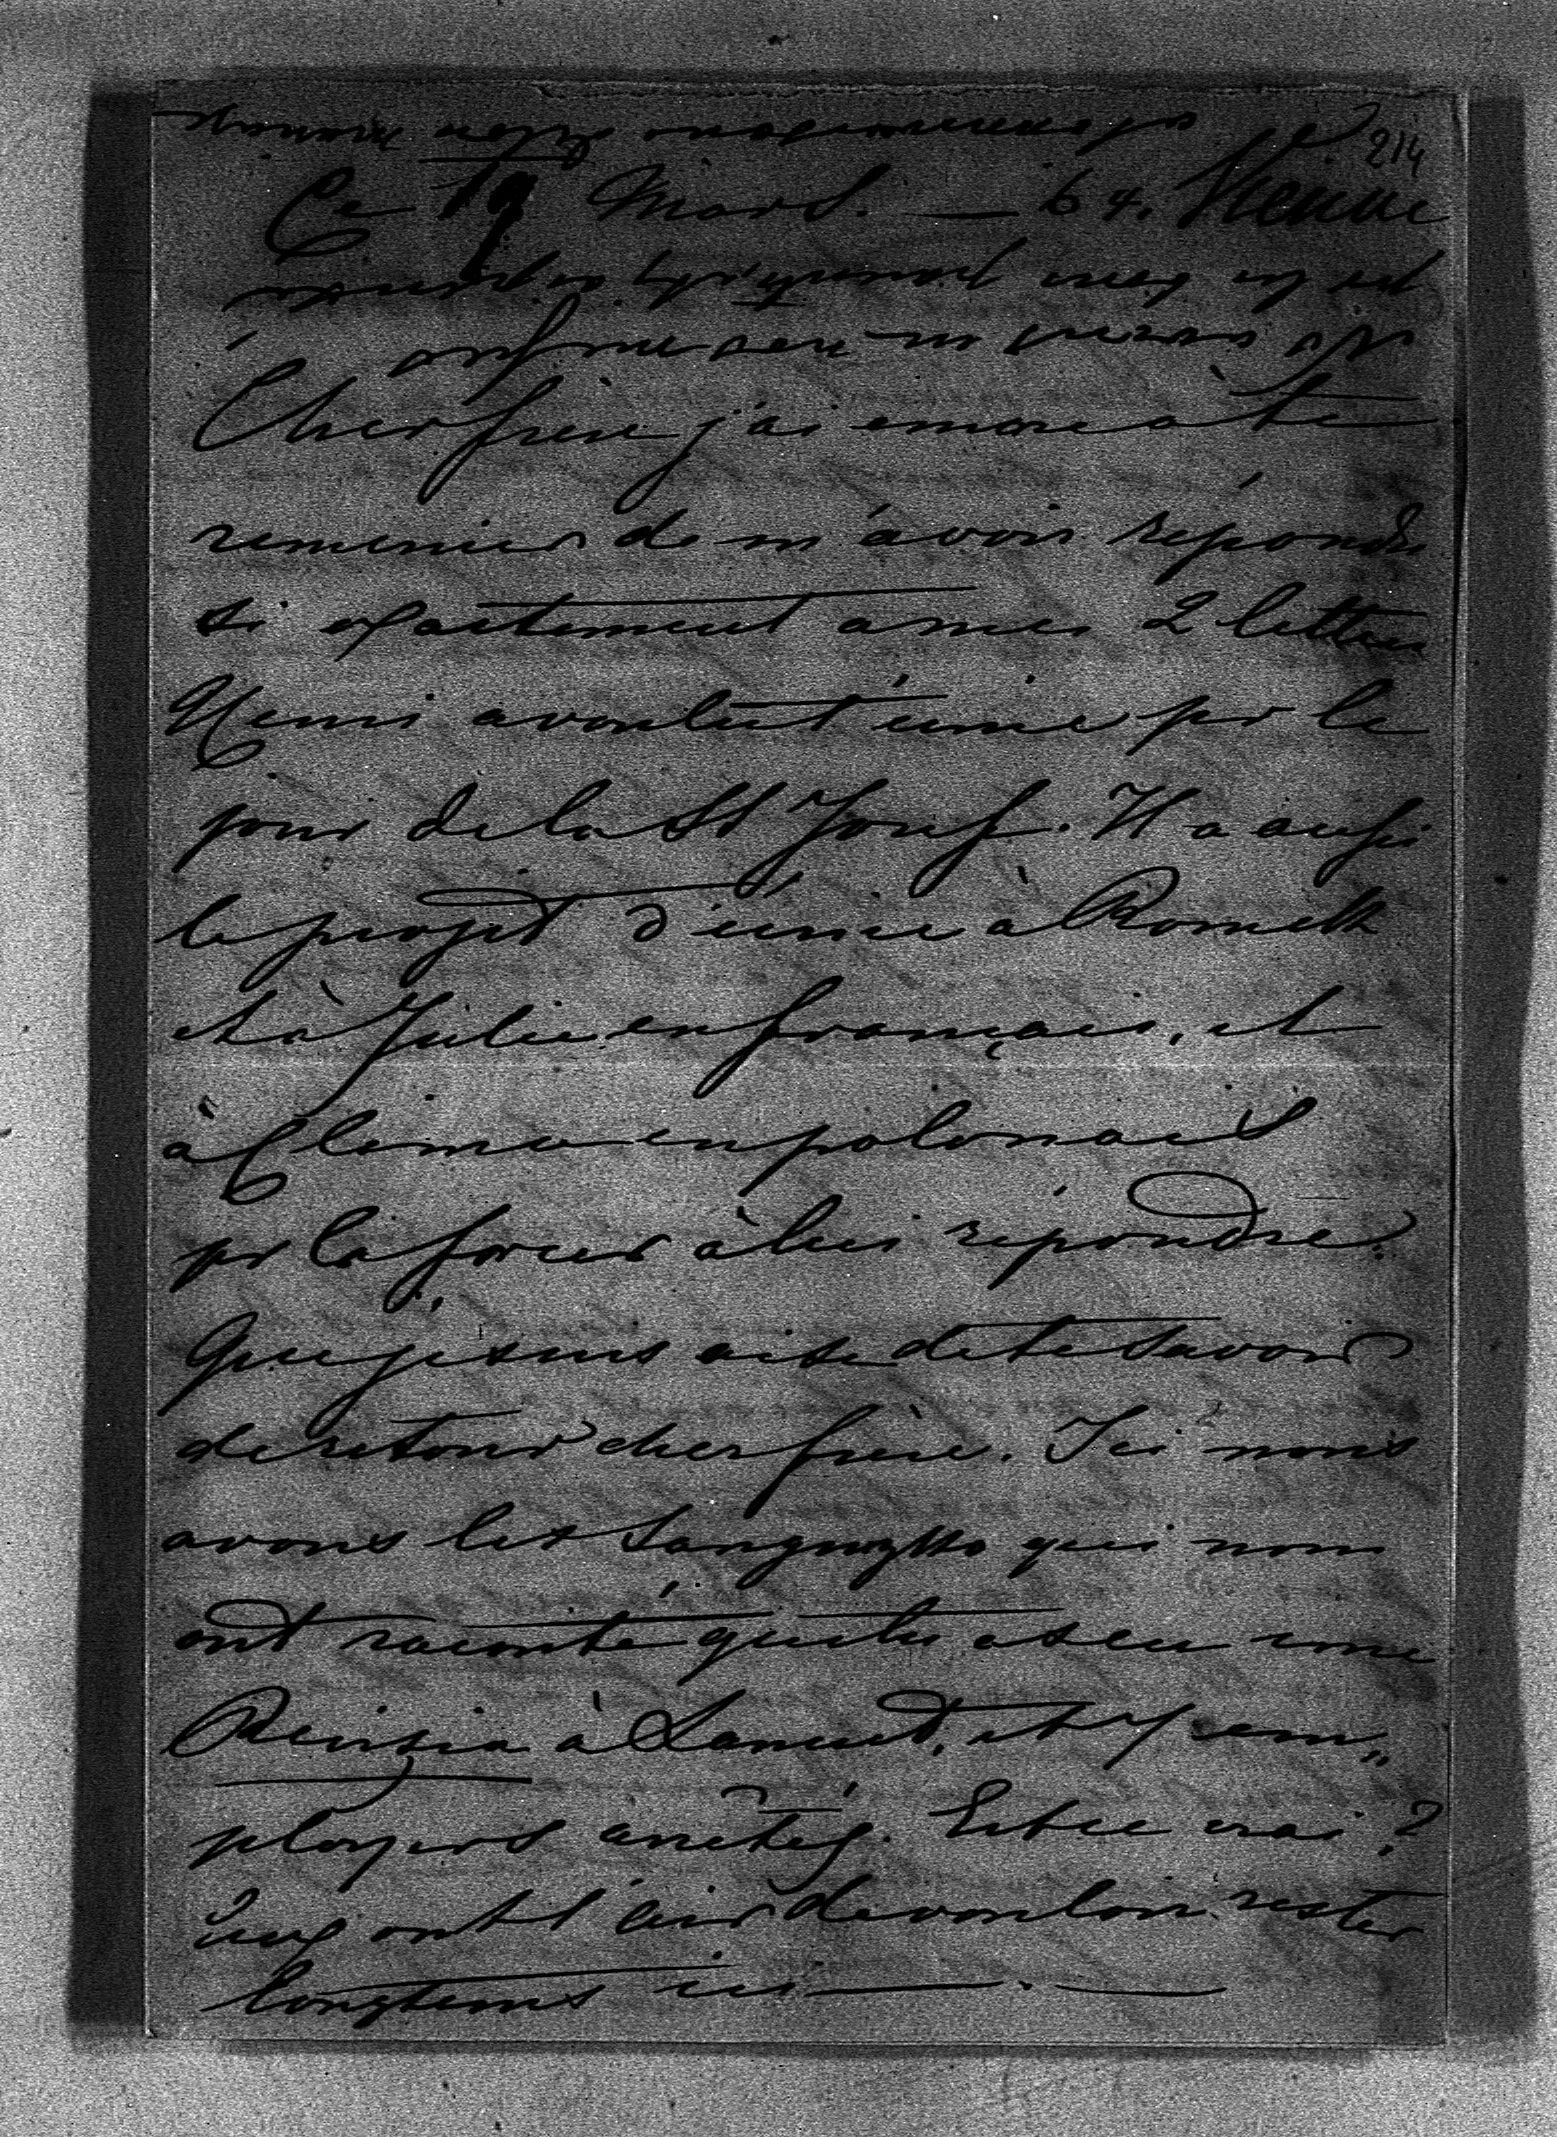 214
Ce 19 Mars. — 64. Vienne
Cher frère j'ai encore à te
remercier de m'avoir répondu
si exactement a mes 2 lettres
Henri a voulut t'écrire pr le
jour de la St Josef. Il a aussi
le projet d'écrire à
et à Julie en français, et
à Clema en polonais
pr la forcer à lui répondre.
Que je suis aise de te savoir
de retour cher frère. Ici nous
avons les Sanguszko qui nous
ont raconté que tu as eu une
Rewizia à Lancut, et 7 em„
ployers arretés. Est ce vrai?
eux ont l'air de vouloir rester
longtems ici —